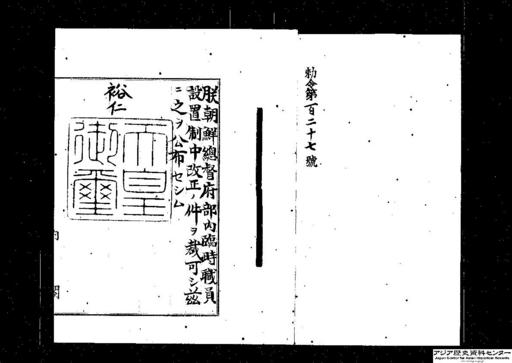 勅令第百二十七號
朕朝鮮總督府部內臨時職員
設置制中改正ノ件ヲ裁可シ茲
ニ之ヲ公布セシム
裕仁
天皇
御璽
内閣
アジア歴史資料センター
Japan Center for Asian Historical Records